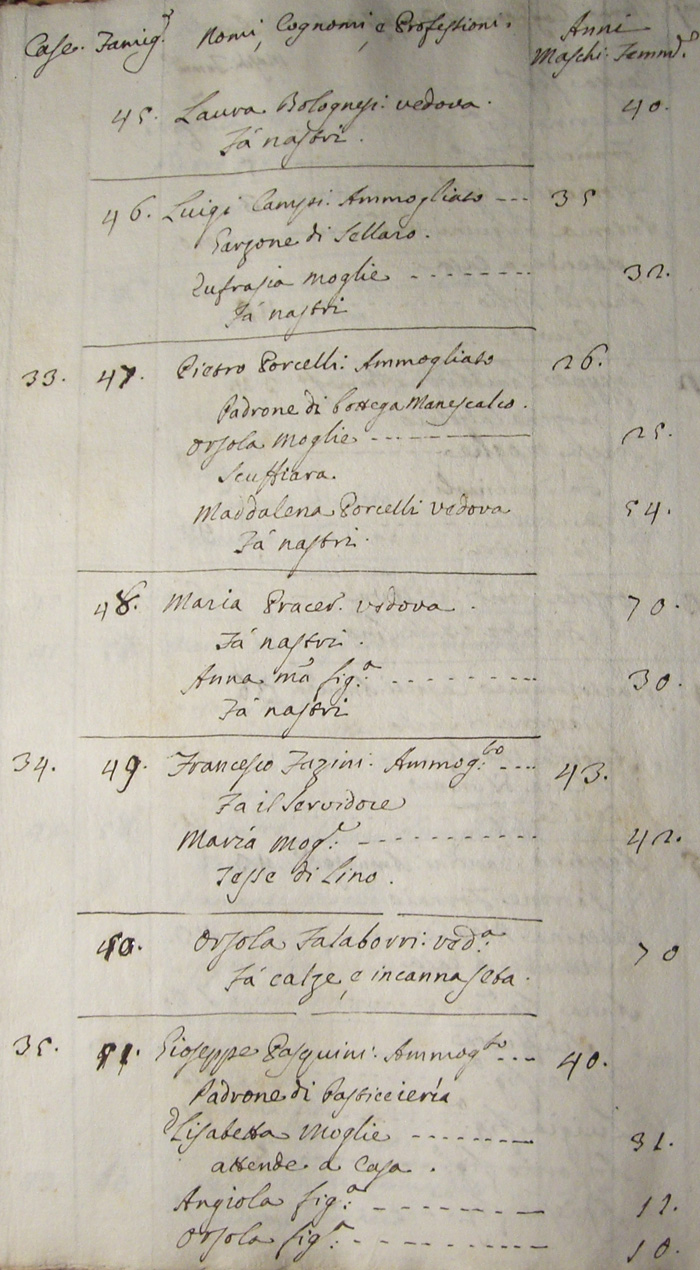 Case. Famig.e Nomi, Cognomi, e Professioni. Anni
Maschi. Femm.e
45. Laura Bolognesi: vedova. 40.
Fà nastri.
46. Luigi Campi: Ammogliato --- 35
Garzone di Sellaro.
Eufrasia moglie - - - - - - - - 32.
Fà nastri
33. 47. Pietro Porcelli: Ammogliato 26.
Padrone di bottega Manescalco.
Orsola Moglie - - - 25.
Scuffiara.
Maddalena Porcelli vedova 54.
Fà nastri.
48. Maria vedova. 70.
Fà nastri.
Anna fig.a - - - - - - - - 30.
Fà nastri
34. 49. Francesco Fazini: Ammog.to --- 43.
Fa il Servidore
Maria mog.e - - - - - - - - 42.
Tesse di Lino.
50. Orsola Falaborri: ved.a 70
Fà calze, e incanna seta.
35. 51. Gioseppe Pasquini: Ammog.to --- 40.
Padrone di Pasticcieria
Elisabetta Moglie - - - - - - - 31.
attende a Casa.
Angiola fig.a - - - - - - - 12.
Orsola fig.a - - - - - - - 10.